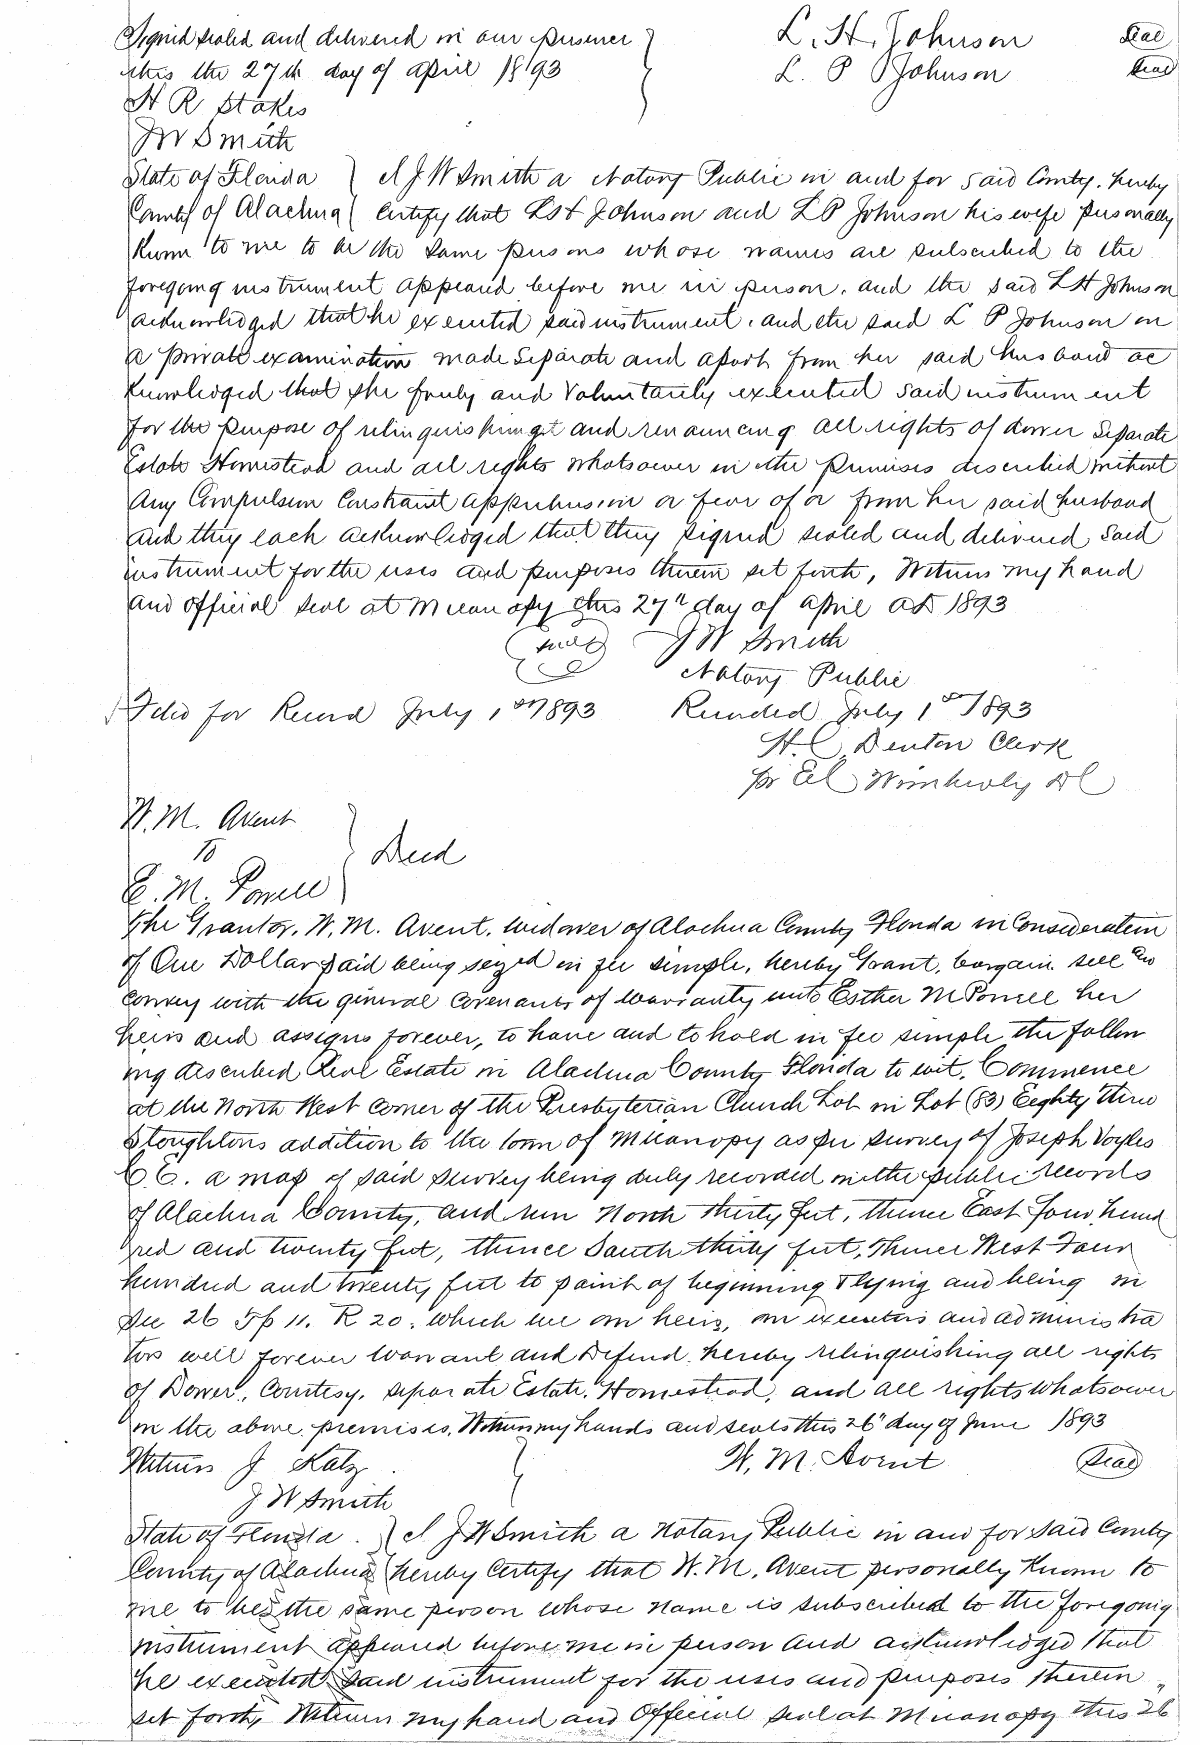 Signed sealed and delivered in our presence } L. H. Johnson Seal
this the 27th day of April 1893 L. P Johnson Seal
H R Stokes
J W Smith
State of Florida } I J W Smith a Notary Public in and for said County, hereby
County of Alachua { Certify that L H Johnson and L P Johnson his wife personally
Known to me to be the same persons whose names are subscribed to the
foregoing instrument appeared before me in person, and the said L H Johnson
acknowledged that he executed said instrument, and the said L P Johnson on
a private examination made separate and apart from her said husband ac
knowledged that she freely and voluntarily executed said instrument
for the purpose of relinquishing and renouncing all rights of dower separate
Estate Homestead and all rights whatsoever in the premises described without
any Compulsion Constraint apprehension or fear of or from her said husband
and they each acknowledged that they signed sealed and delivered said
instrument for the uses and purposes therein set forth, Witness my hand
and official seal at Micanopy this 27th day of April AD 1893
Seal J W Smith
Notary Public
Filed for Record July 1st 1893 Recorded July 1st 1893
H. C. Denton Clerk
pr E C Wimberly D C
W. M. Avent
To } Deed
E. M. Powell
The Grantor, W. M. Avent, widower of Alachua County Florida in Consideration
of One Dollar paid being seized in fee simple, hereby Grant, bargain, sell and
convey with the general Covenants of warranty unto Esther M Powell her
heirs and assigns forever, to have and to hold in fee simple the follow
ing described Real Estate in Alachua County Florida to wit, Commence
at the North West corner of the Presbyterian Church Lot in Lot (83) Eighty three
Stoughtons addition to the town of Micanopy as per survey of Joseph Voyles
C. E. a map of said survey being duly recorded in the public records
of Alachua County, and run North thirty feet, thence East four hund
red and twenty feet, thence South thirty feet, thence West Four
hundred and twenty feet to point of beginning lying and being in
Sec 26 Tp 11. R 20. which we our heirs, our executors and administra
tors will forever warrant and Defend hereby relinquishing all rights
of Dower, Courtesy, separate Estate, Homestead, and all rights whatsoever
in the above premises, Witness my hands and seals this 26th day of June 1893
Witness J Katz } W. M. Avent Seal
J W Smith
State of Florida } I J W Smith a Notary Public in and for said County
County of Alachua { hereby Certify that W. M. Avent personally Known to
me to be the same person whose name is subscribed to the foregoing
instrument appeared before me in person and acknowledged that
he executed said instrument for the uses and purposes therein
set forth, Witness my hand and Official seal at Micanopy this 26